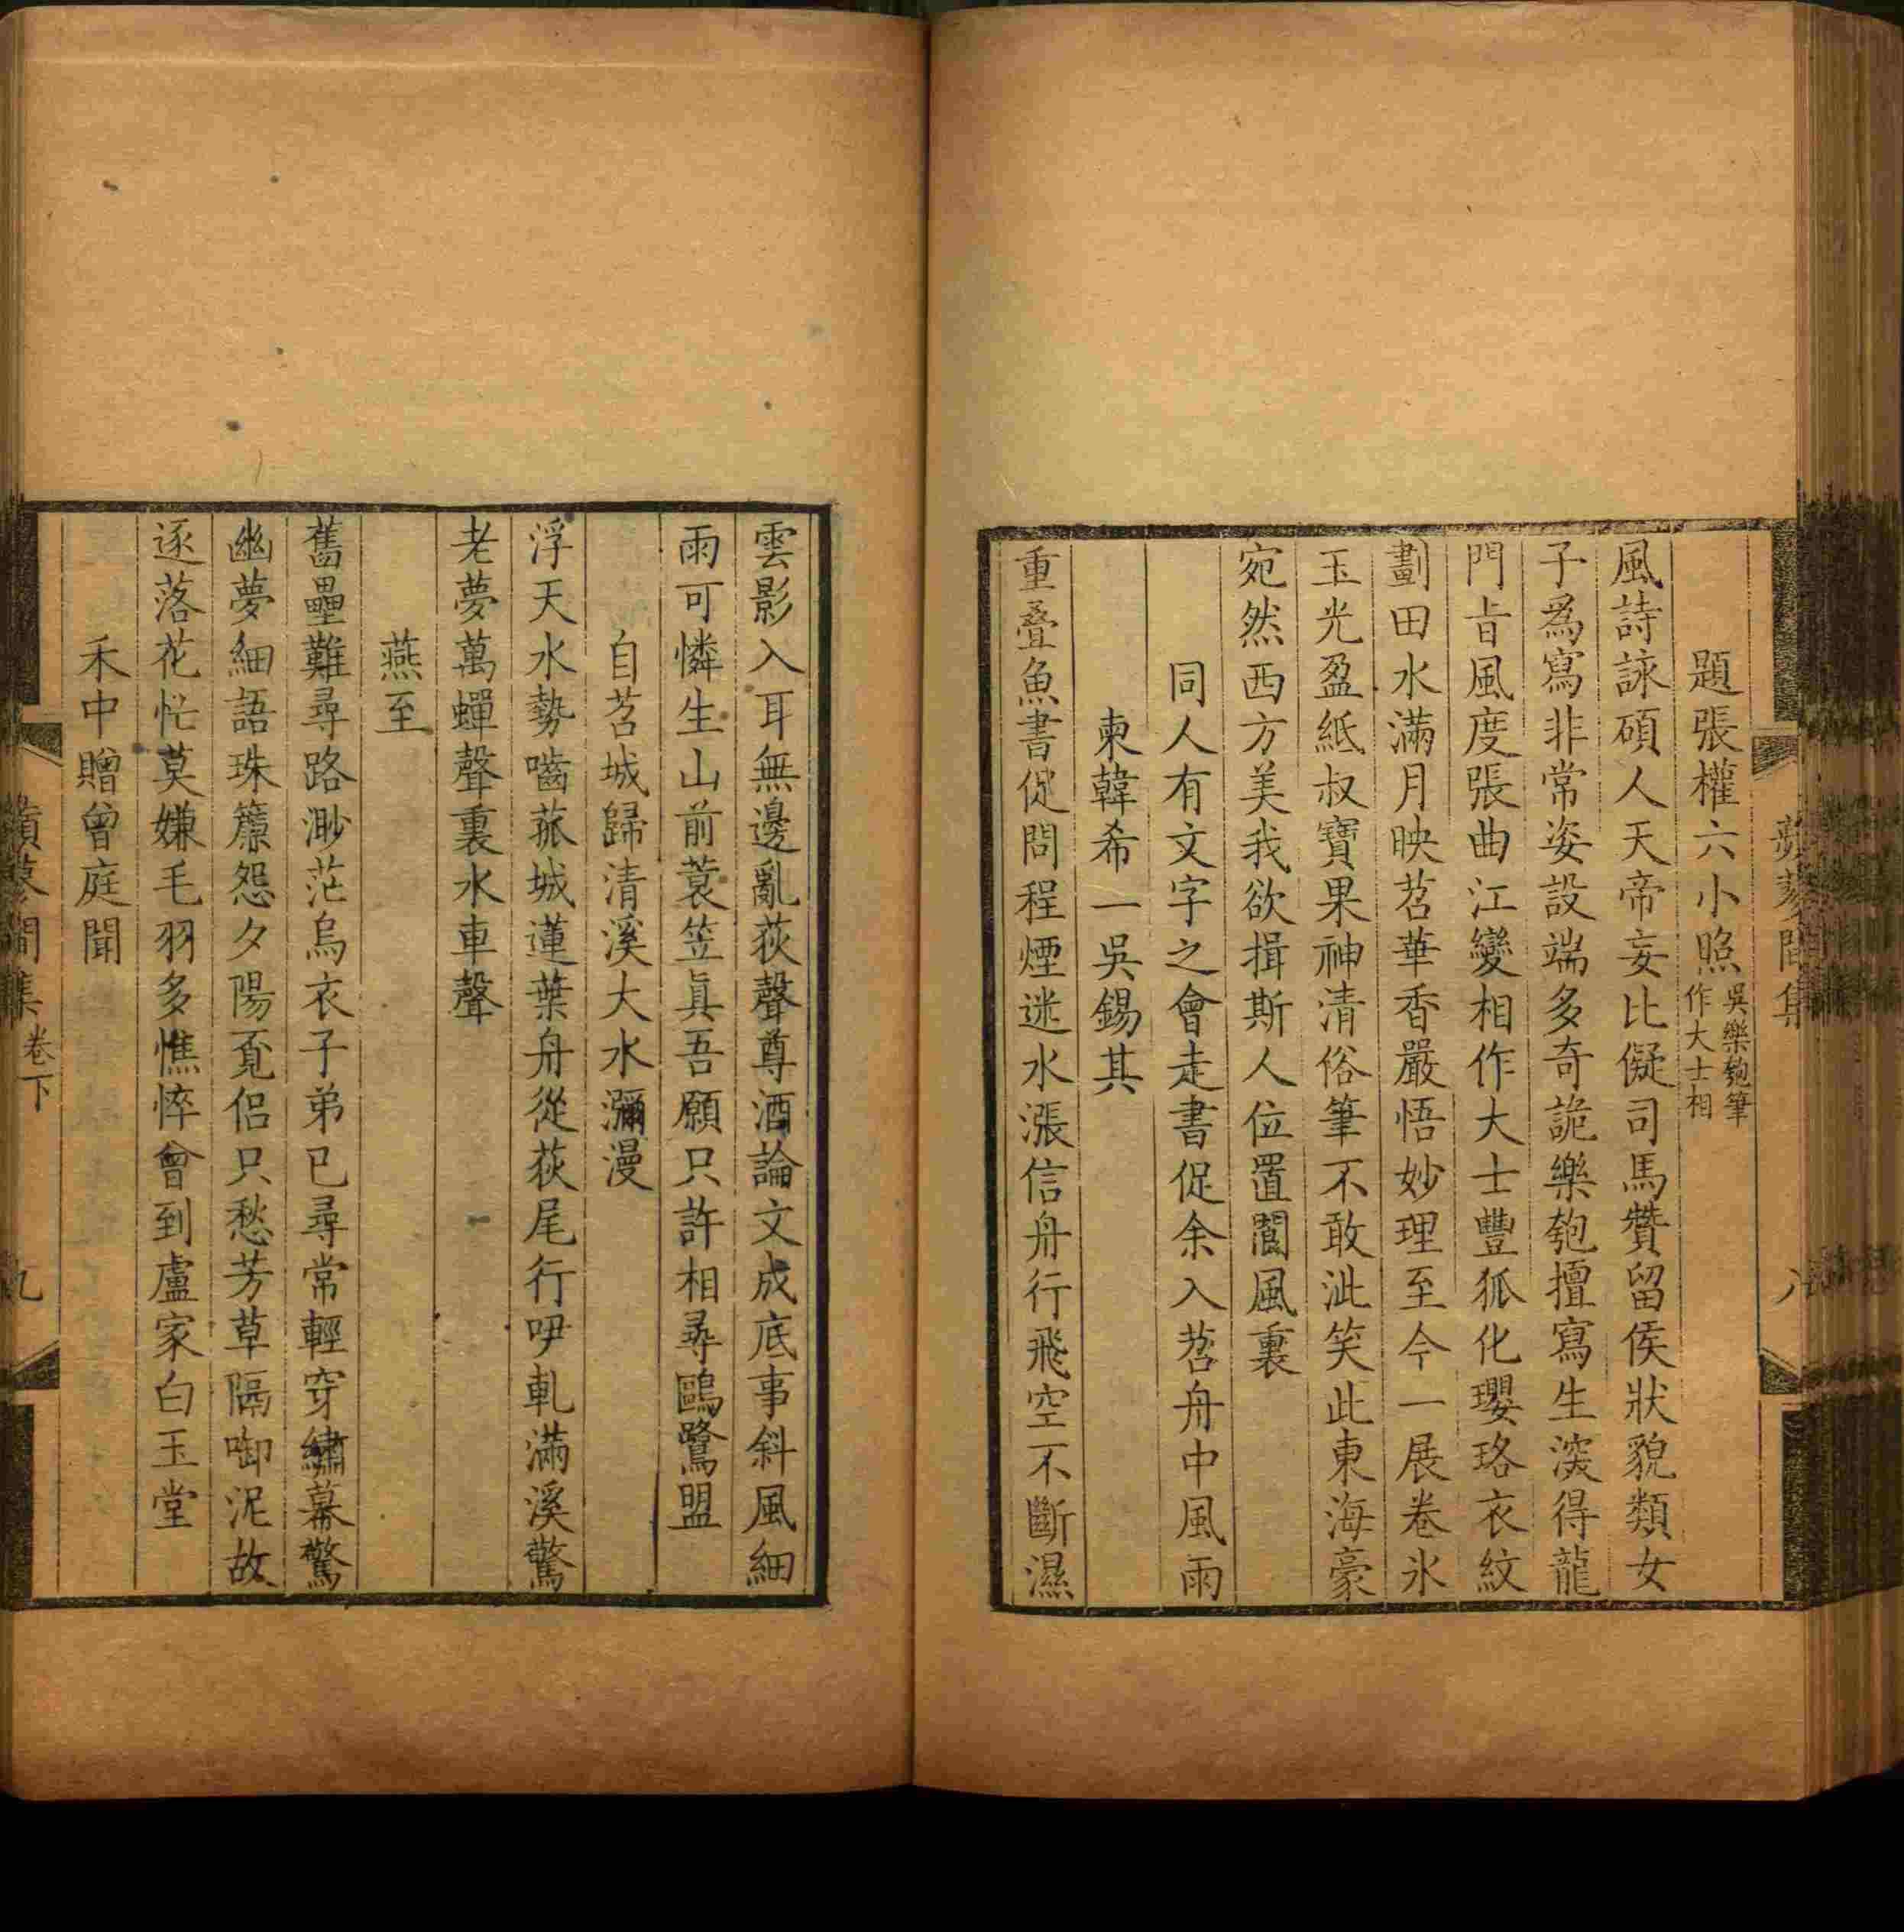 題張權六小照 吳樂匏筆作大士相
風詩詠碩人天帝妄比儗司馬贊留侯狀貌類女
子爲寫非常姿設端多奇詭樂匏擅寫生淡得龍
門㫖風度張曲江變相作大士豐狐化瓔珞衣紋
劃田水滿月映苕華香嚴悟妙理至今一展卷氷
玉光盈紙叔寶果神清俗筆不敢泚笑此東海豪
宛然西方美我欲揖斯人位置閬風裏
同人有文字之會走書促余入苕舟中風雨
柬韓希一吳錫其
重疊魚書促問程煙迷水漲信舟行飛空不斷濕
雲影入耳無邊亂荻聲尊酒論文成底事斜風細
雨可憐生山前蓑笠眞吾願只許相尋鷗鷺盟
自苕城歸清溪大水瀰漫
浮天水勢嚙菰城蓮葉舟從荻尾行吚軋滿溪驚
老夢萬蟬聲裏水車聲
燕至
舊壘難尋路渺茫烏衣子弟已尋常輕穿繡幕驚
幽夢細語珠簾怨夕陽覓侶只愁芳草隔啣泥故
逐落花忙莫嫌毛羽多憔悴曾到盧家白玉堂
禾中贈曾庭聞
卷下
九